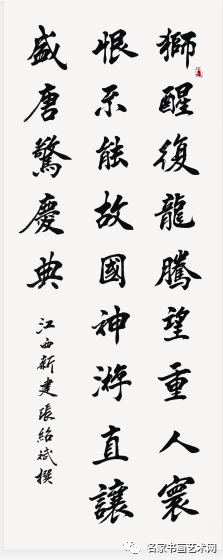 獅醒復龍騰望重人寰
恨不能故國神游直讓
盛唐驚慶典
江西新建張紹斌撰
名家书画艺术网